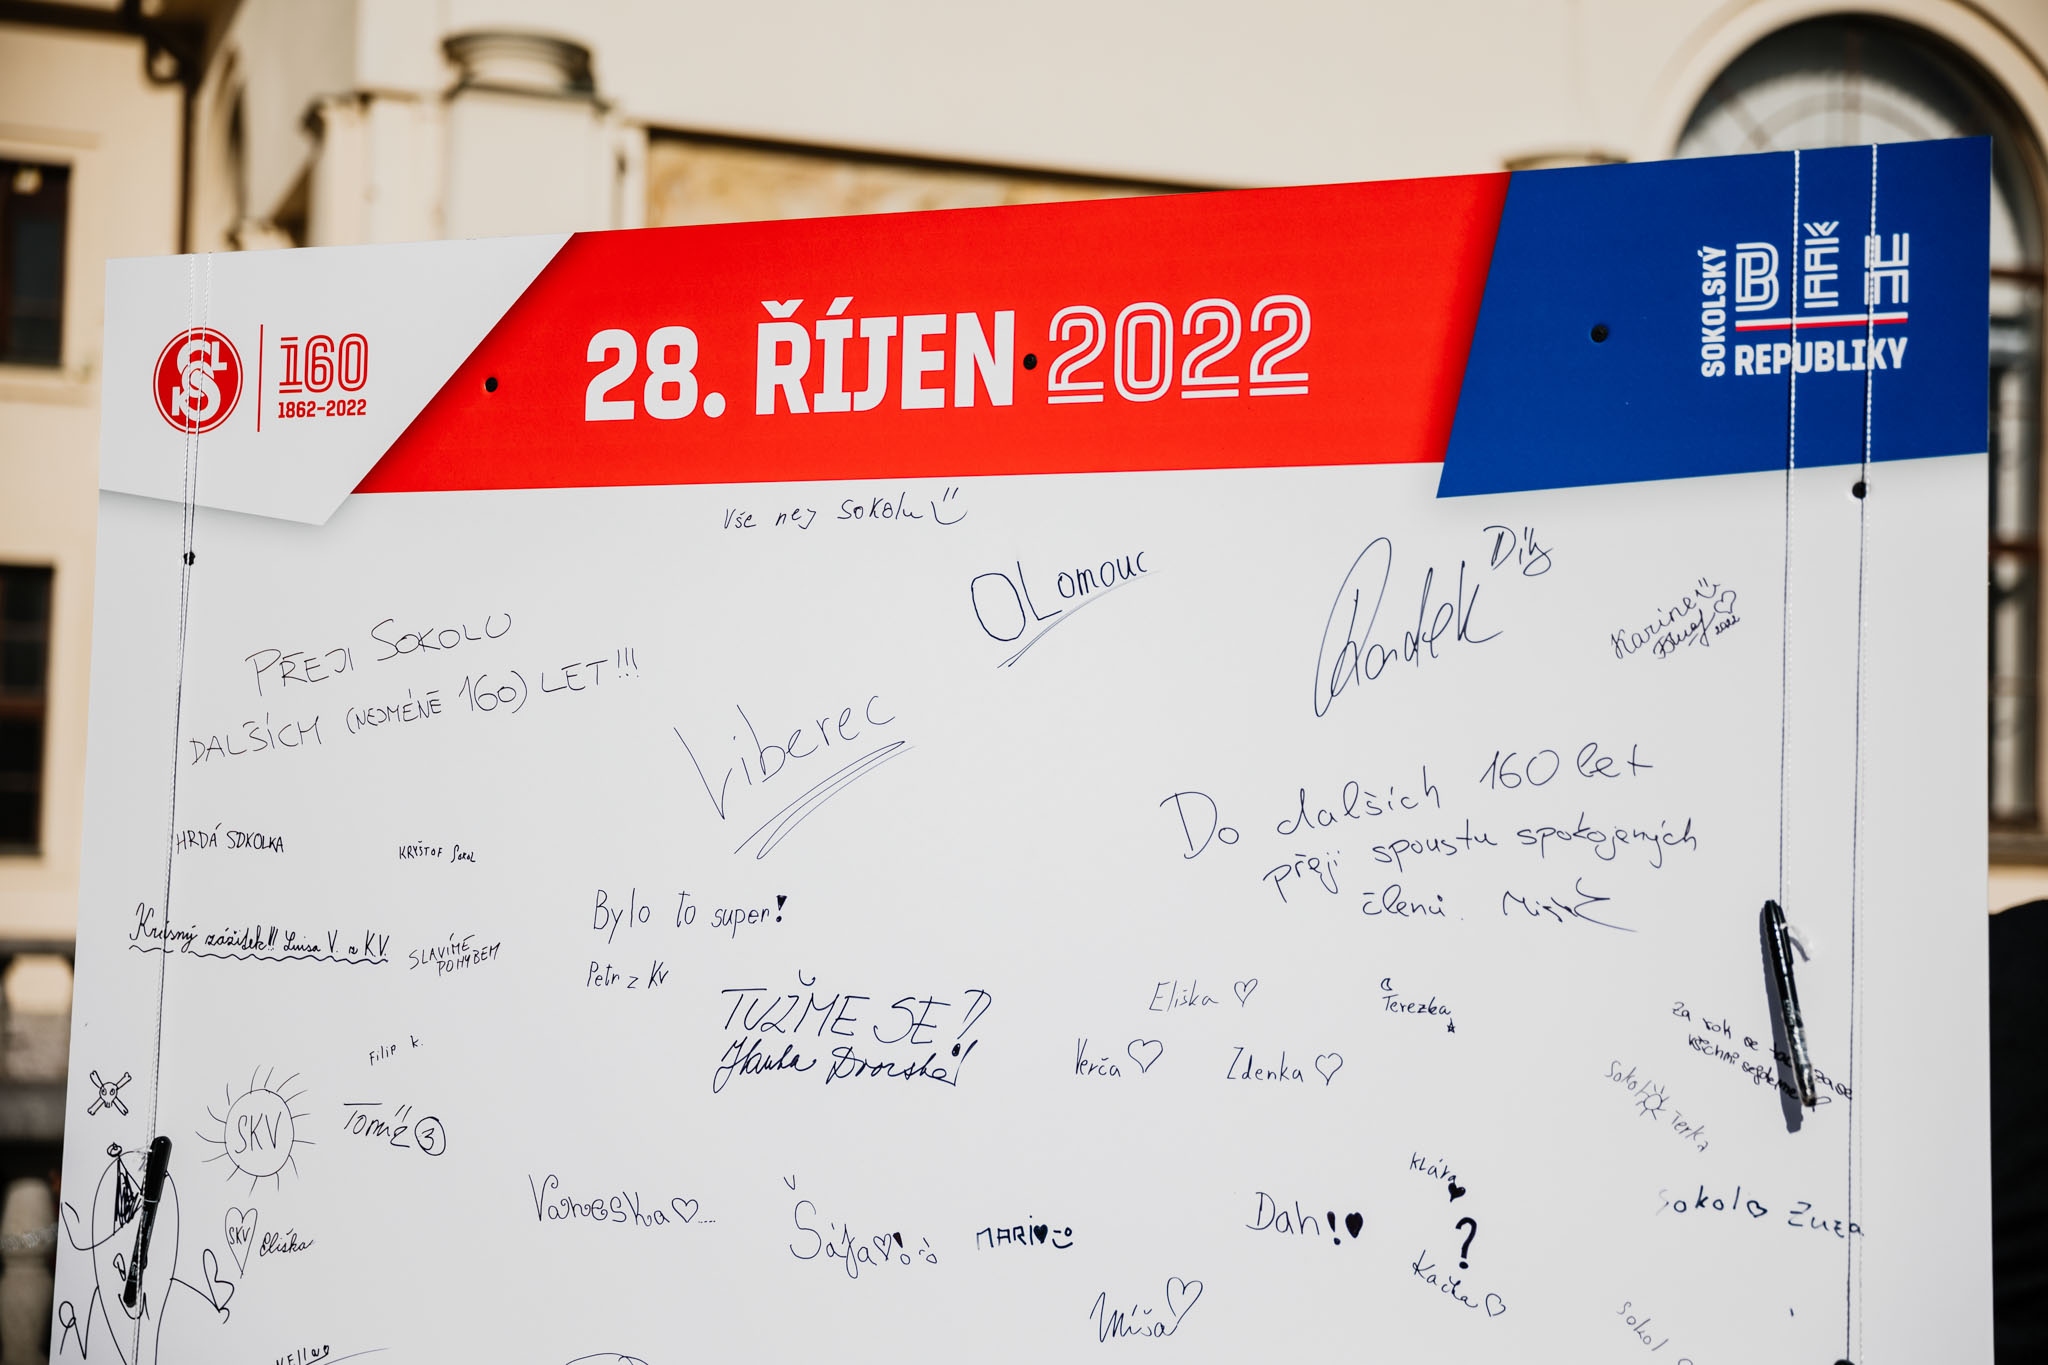 160
1862-2022
28. ŘÍJEN 2022
SOKOLSKÝ
BĚH
REPUBLIKY
Vše nej Sokolu
OLomouc
Radek
Díky
Karina
2022
PŘEJI SOKOLU
DALŠÍCH (NEJMÉNĚ 160) LET!!!
Liberec
Do dalších 160 let
přeji spoustu spokojených
členů.
HRDÁ SOKOLKA
KRYŠTOF SOKOL
Krásný zážitek!!! Luisa V. z KV.
SLAVÍME
POHYBEM
Bylo to super!
Petr z KV
TUŽME SE!
Eliška
Terezka
Verča
Zdenka
Za rok se tady zase
všichni sejdeme
Sokol
Terka
Filip K.
SKV
Tomáš 3
SKV
Eliška
Vaneska
Šája!
MARI
Dah!
Klára
?
Kačka
Sokol Zuza
Míša
Sokol